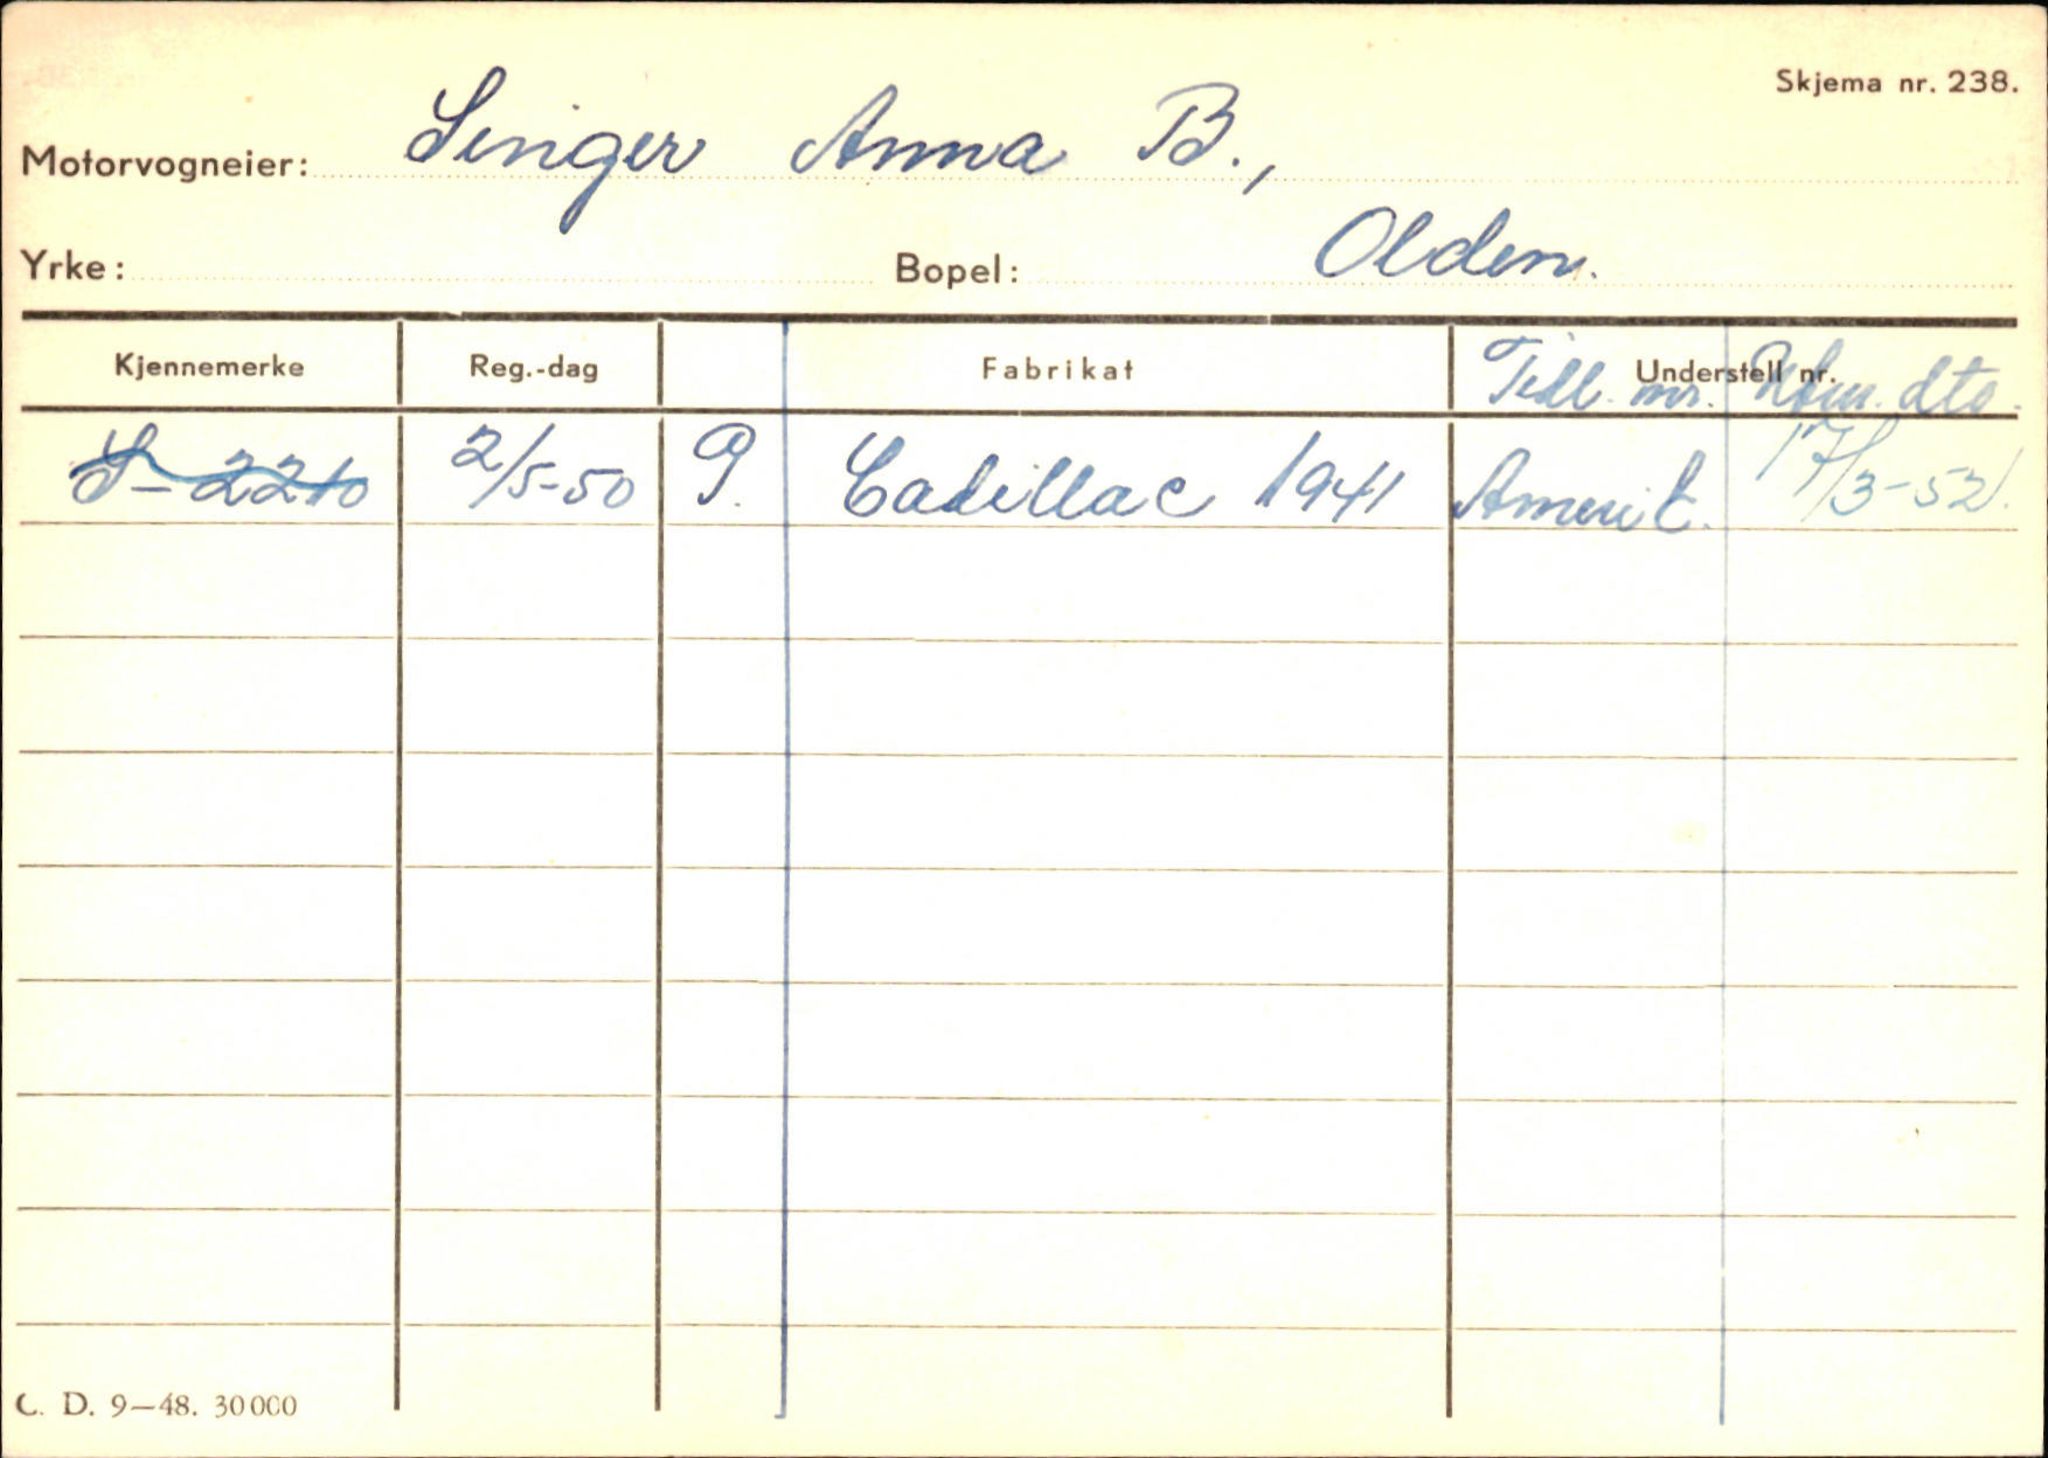 Skjema nr. 238.
Motorvogneier: Singer Anna B.,
Yrke: Bopel: Olden.
Kjennemerke Reg.-dag Fabrikat Understell nr. Tidl. nr. dto.
S-2210 2/5-50 P. Cadillac 1941 Amerik. 17/3-52.
C. D. 9—48. 30000